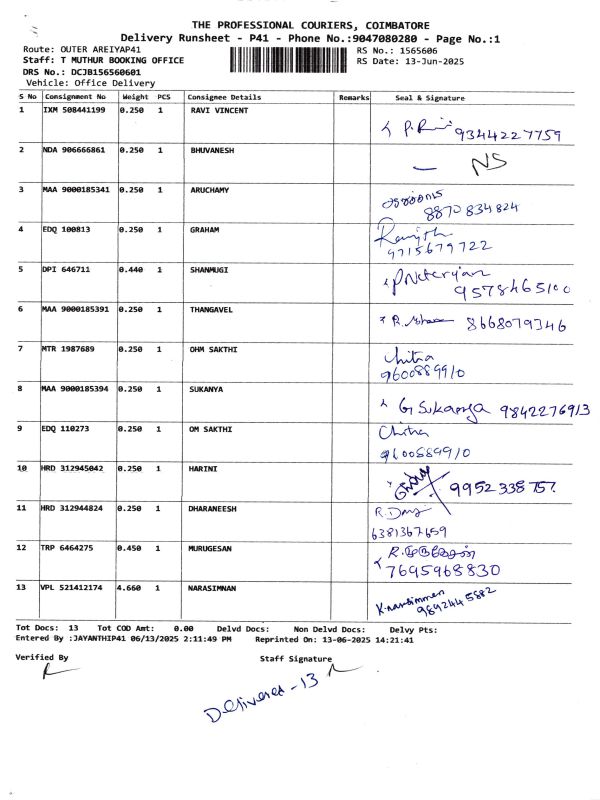 THE PROFESSIONAL COURIERS, COIMBATORE
Delivery Runsheet - P41 - Phone No.:9047080280 - Page No.:1
Route: OUTER AREIYAP41 RS No.: 1565606
Staff: T MUTHUR BOOKING OFFICE RS Date: 13-Jun-2025
DRS No.: DCJB156560601
Vehicle: Office Delivery
S No Consignment No Weight PCS Consignee Details Remarks Seal & Signature
1 IXM 508441199 0.250 1 RAVI VINCENT
9344227759
2 NDA 906666861 0.250 1 BHUVANESH
— NS
3 MAA 9000185341 0.250 1 ARUCHAMY
8870834824
4 EDQ 100813 0.250 1 GRAHAM
Ranjith
9715679722
5 DPI 646711 0.440 1 SHANMUGI
9578465100
6 MAA 9000185391 0.250 1 THANGAVEL
8668079346
7 MTR 1987689 0.250 1 OHM SAKTHI
Chitra
9600889910
8 MAA 9000185394 0.250 1 SUKANYA
G Sukanya 9842276913
9 EDQ 110273 0.250 1 OM SAKTHI
Chitra
9600589910
10 HRD 312945042 0.250 1 HARINI
9952338757
11 HRD 312944824 0.250 1 DHARANEESH
6381367659
12 TRP 6464275 0.450 1 MURUGESAN
7695968830
13 VPL 521412174 4.660 1 NARASIMNAN
K.narasimmen
9892445882
Tot Docs: 13 Tot COD Amt: 0.00 Delvd Docs: Non Delvd Docs: Delvy Pts:
Entered By :JAYANTHIP41 06/13/2025 2:11:49 PM Reprinted On: 13-06-2025 14:21:41
Verified By Staff Signature
Delivered - 13